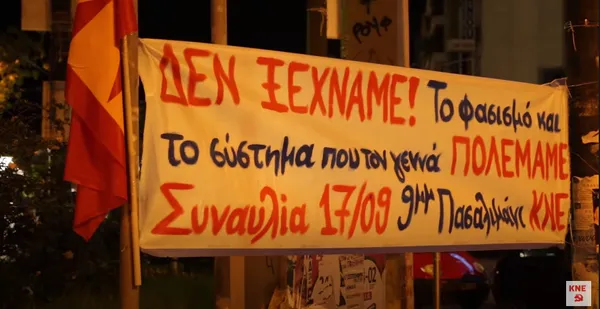 ΔΕΝ ΞΕΧΝΑΜΕ! Το φασισμό και
το σύστημα που τον γεννά ΠΟΛΕΜΑΜΕ
Συναυλία 17/09 9μμ Πασαλιμάνι ΚΝΕ
ΚΝΕ